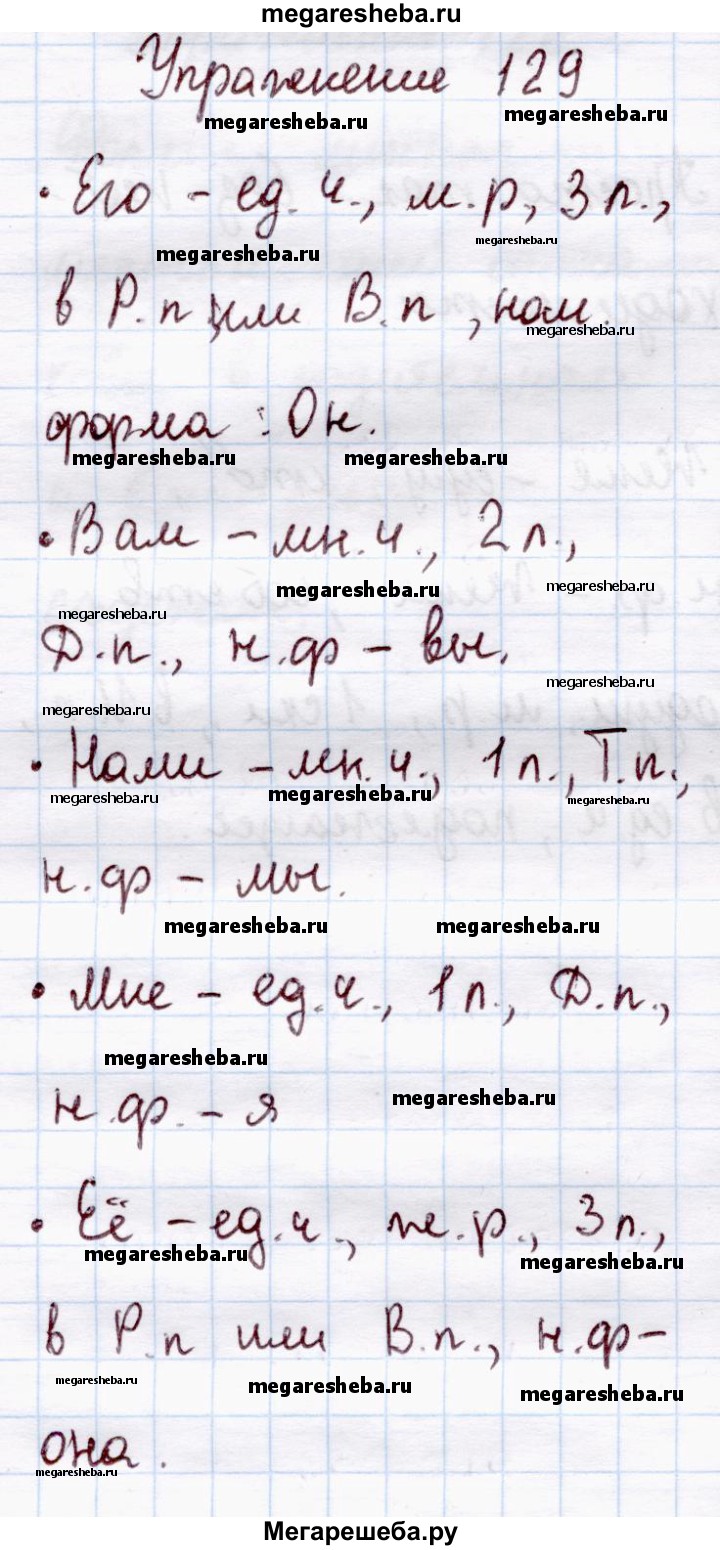 megaresheba.ru
Упражнение 129
megaresheba.ru megaresheba.ru
• Его - ед. ч., м.р, 3 п.,
megaresheba.ru megaresheba.ru
в Р.п или В.п , нач.
megaresheba.ru
форма : Он.
megaresheba.ru megaresheba.ru
• Вам - мн.ч., 2 п.,
megaresheba.ru megaresheba.ru
megaresheba.ru
Д.п., н.ф - вы.
megaresheba.ru
megaresheba.ru
• Нами - мн.ч., 1 п., Т.п.,
megaresheba.ru megaresheba.ru megaresheba.ru
н.ф - мы.
megaresheba.ru megaresheba.ru
• Мне - ед.ч., 1 п., Д.п.,
megaresheba.ru
н.ф. - я megaresheba.ru
• Её - ед.ч., ж.р., 3 п.,
megaresheba.ru megaresheba.ru
в Р.п или В.п., н.ф-
megaresheba.ru megaresheba.ru megaresheba.ru
она.
megaresheba.ru
Мегарешеба.ру